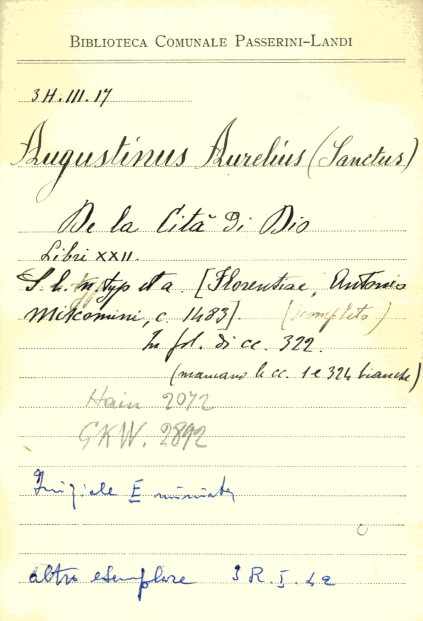 BIBLIOTECA COMUNALE PASSERINI-LANDI
3 H. III. 17
Augustinus Aurelius (Sanctus)
De la Cità di Dio
Libri XXII.
S. l. typ et a. [Florentiae, Antonio
Miscomini, c. 1483]. (completo)
In fol. di cc. 322.
(mancano le cc. 1 e 324 bianche)
Hain 2072
GKW. 2892
Iniziale E miniata
altro esemplare 3 R. I. 42